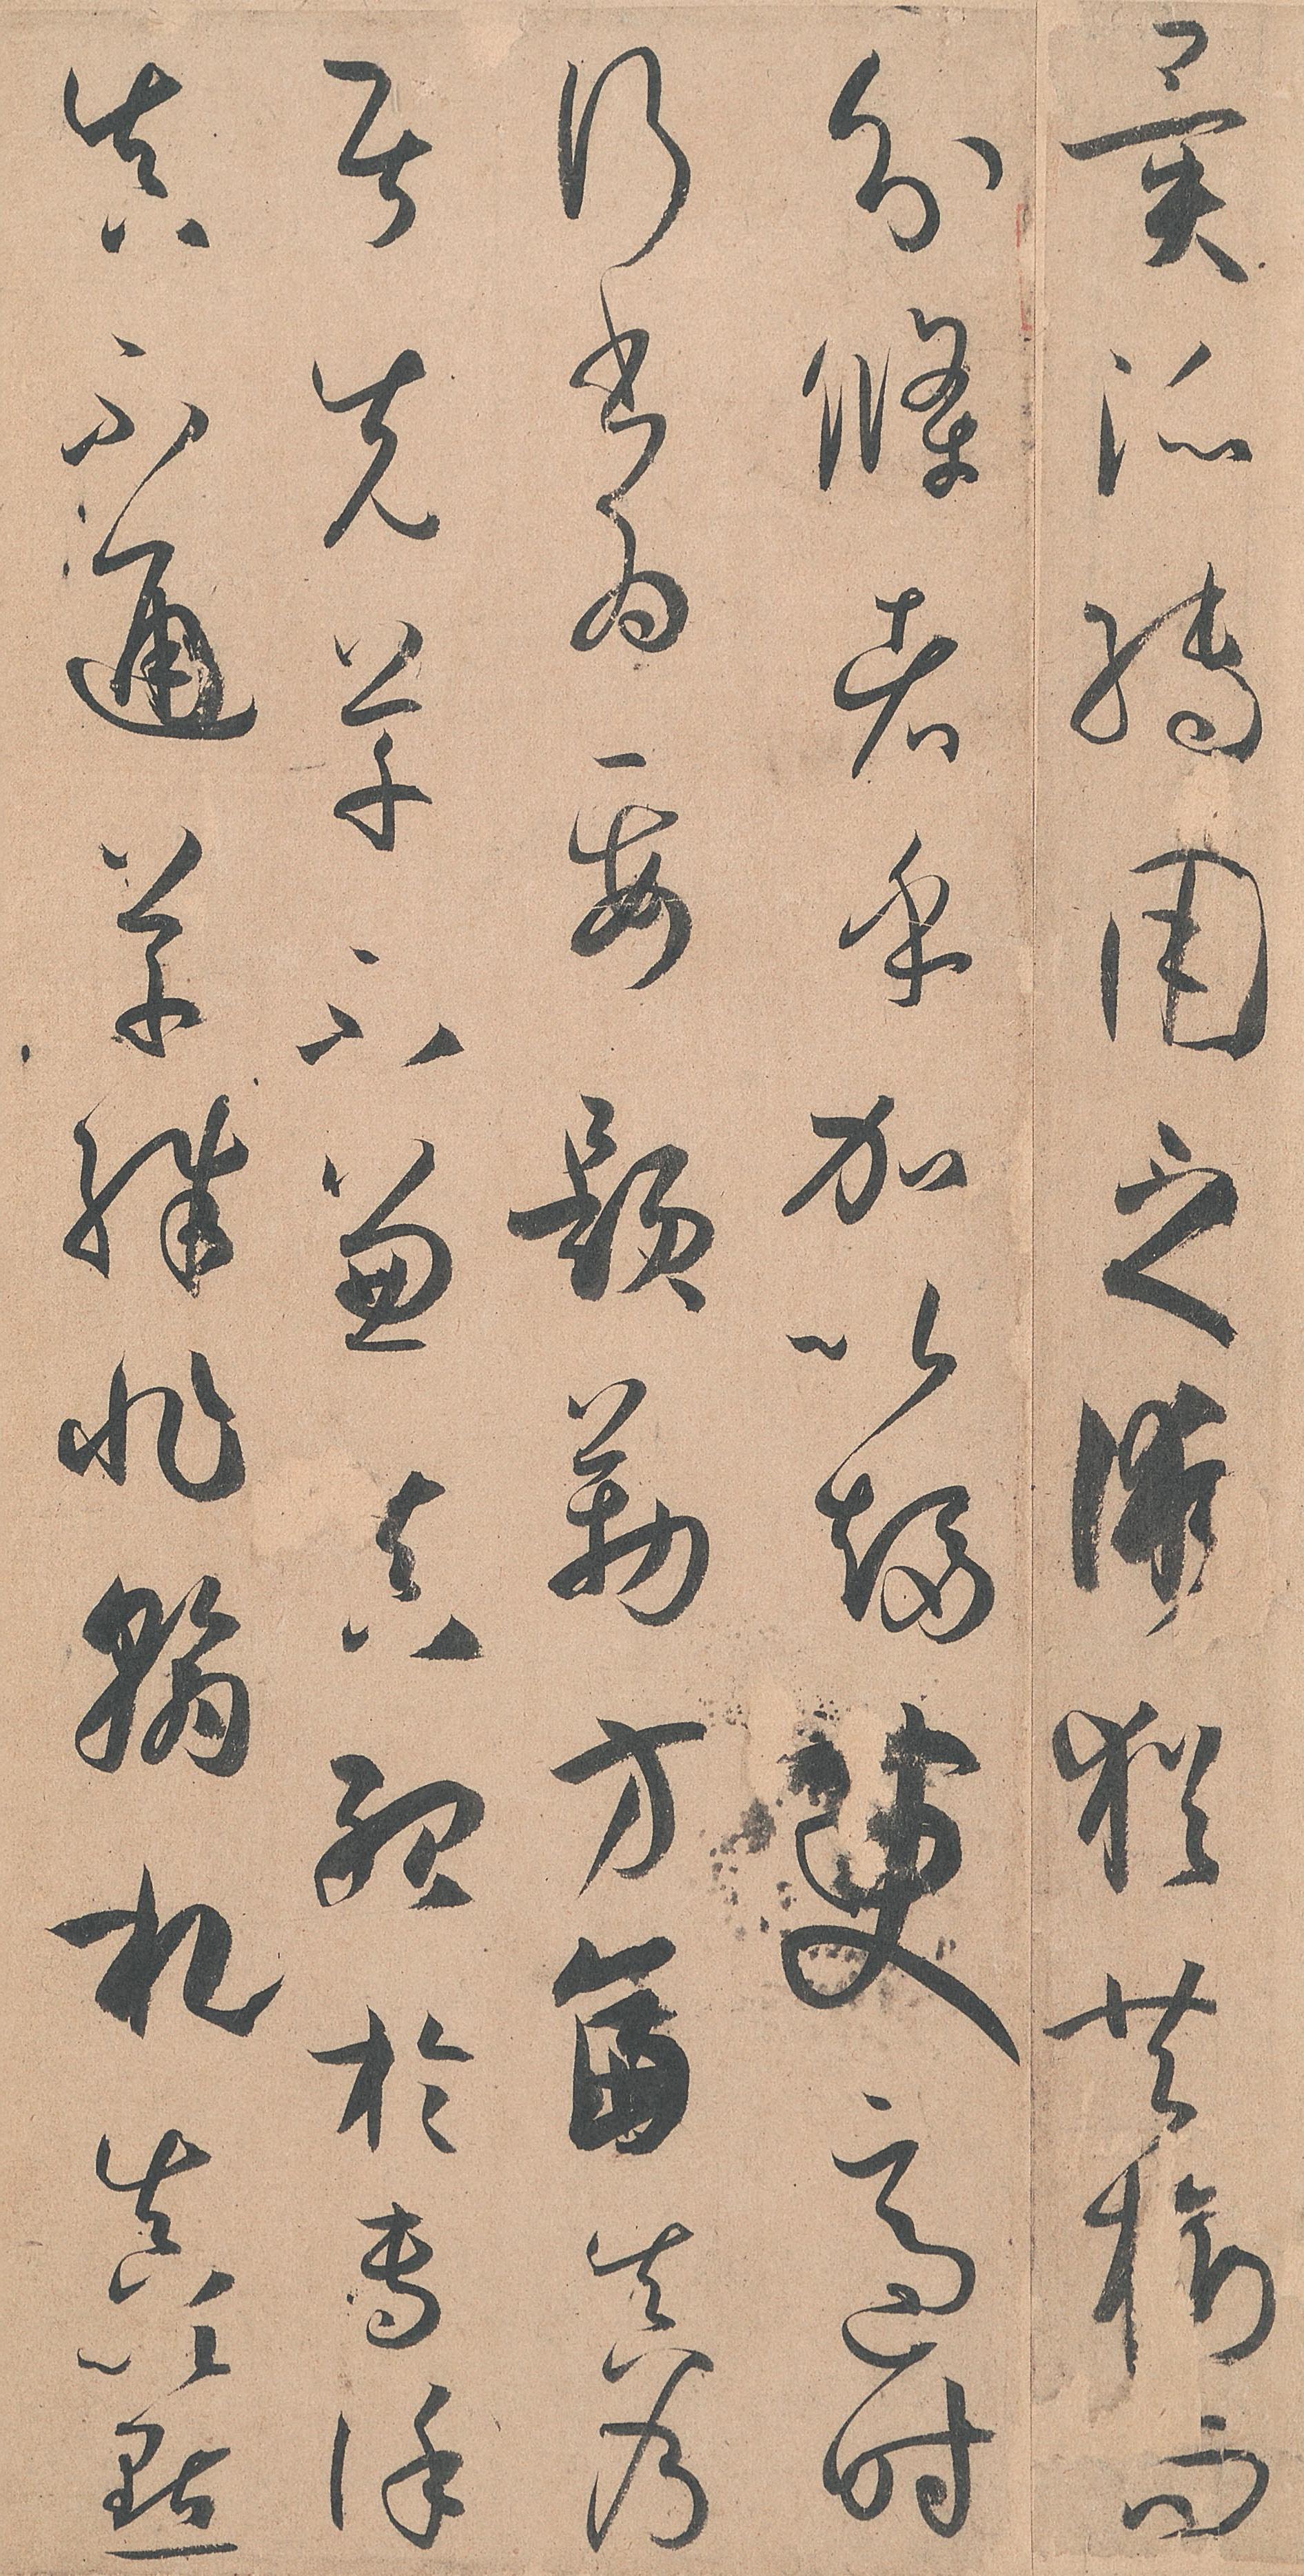 異派轉用之濟猶共樹而
分條者乎加以趨吏適時
行書為要題勒方畐真乃
居先草不兼真殆於專謹
真不通草殊非翰札真以點